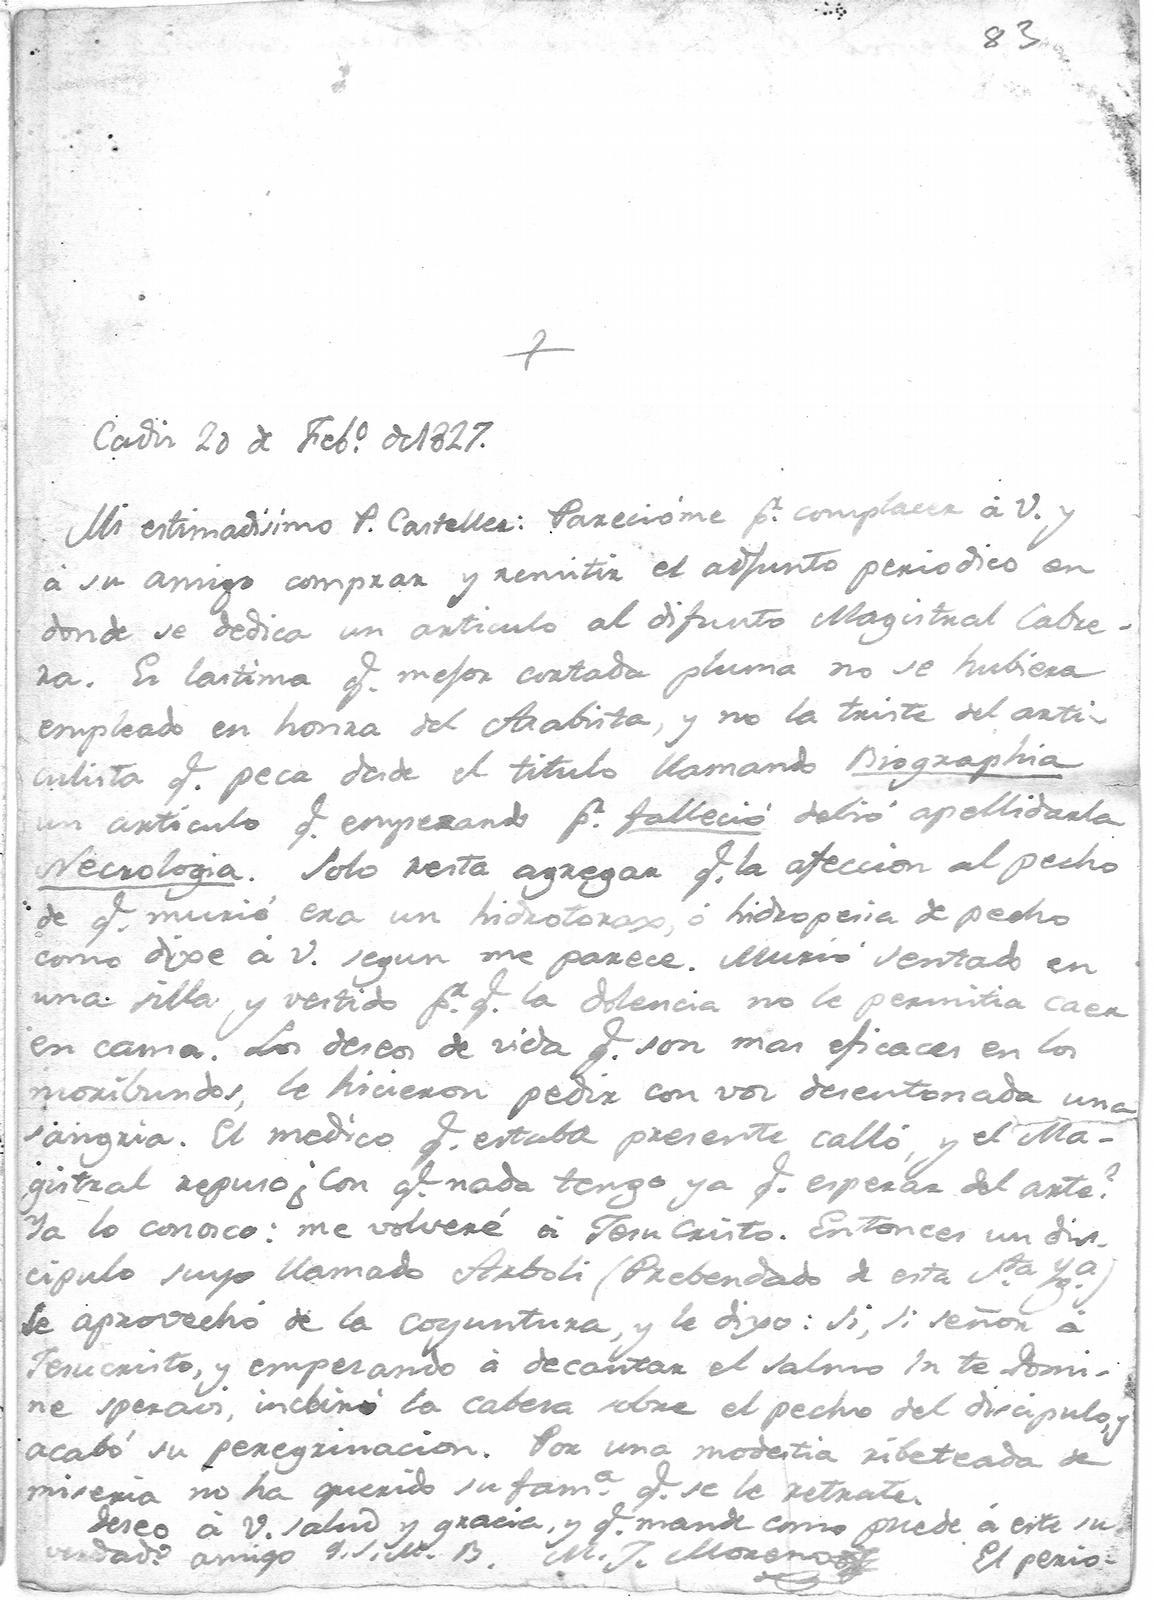 83
+
Cadiz 20 de Feb.º de 1827.
Mi estimadisimo P. Casteller: Parecióme p.ª complacer á V. y
á su amigo comprar y remitir el adjunto periodico en
donde se dedica un articulo al difunto Magistral Cabre-
ra. Es lastima q.e mejor cortada pluma no se hubiera
empleado en honra del Arabista, y no la triste del arti-
culista q.e peca desde el titulo llamando Biographia
un articulo q.e empezando p.r falleció debió apellidarla
Necrologia. Solo resta agregar q.e la afeccion al pecho
de q.e murió era un hidrotorax, ó hidropesia de pecho
como dixe á V. segun me parece. Murió sentado en
una silla y vestido p.r q.e la dolencia no le permitia caer
en cama. Los deseos de vida q.e son mas eficaces en los
moribundos, le hicieron pedir con voz desentonada una
sangria. El medico q.e estaba presente calló, y el Ma-
gistral repuso ¿Con q.e nada tengo ya q.e esperar del arte?
Ya lo conosco: me volveré á JesuCristo. Entonces un dis-
cipulo suyo llamado Arboli (Prebendado de esta S.ta Yg.a)
se aprovechó de la coyuntura, y le dixo: si, si señor á
Jesucristo, y empezando á decantar el salmo In te Domi-
ne speravi, inclinó la cabeza sobre el pecho del discipulo, y
acabó su peregrinacion. Por una modestia ribeteada de
miseria no ha querido su fam.ª q.e se le retrate.
Deseo á V. salud y gracia, y q.e mande como puede á este su
verdad.º amigo Q.S.M.B. M. J. Moreno El perio-